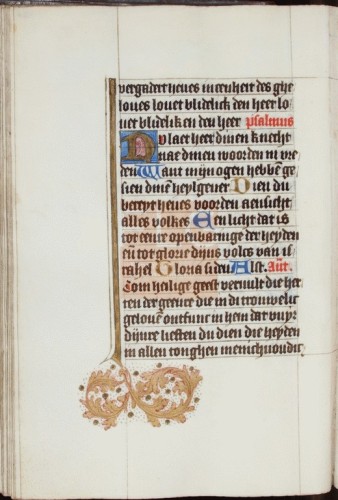 vergadert heves in eenheit des ghe
loves lovet blidelick den heer lo
vet blideliken den heer psalmus
Nv laet heer dinen knecht
nae dinen woorden in vre
den Want mijn ogen hebbē ge
sien dinē heylgever Dien du
bereyt heves voorden aensicht
alles volkes Een licht dat is
tot eenre openbaringe der heyden
eñ tot glorie dijns volcs van is
rahel Gloria si den Alst. Añt.
Com heilige geest vervult die her
ten der geenre die in di trouwelic
gelovē ontfunc in hem dat vuyr
dijnre lieften du dien die heyden
in allen tonghen menichvoudic